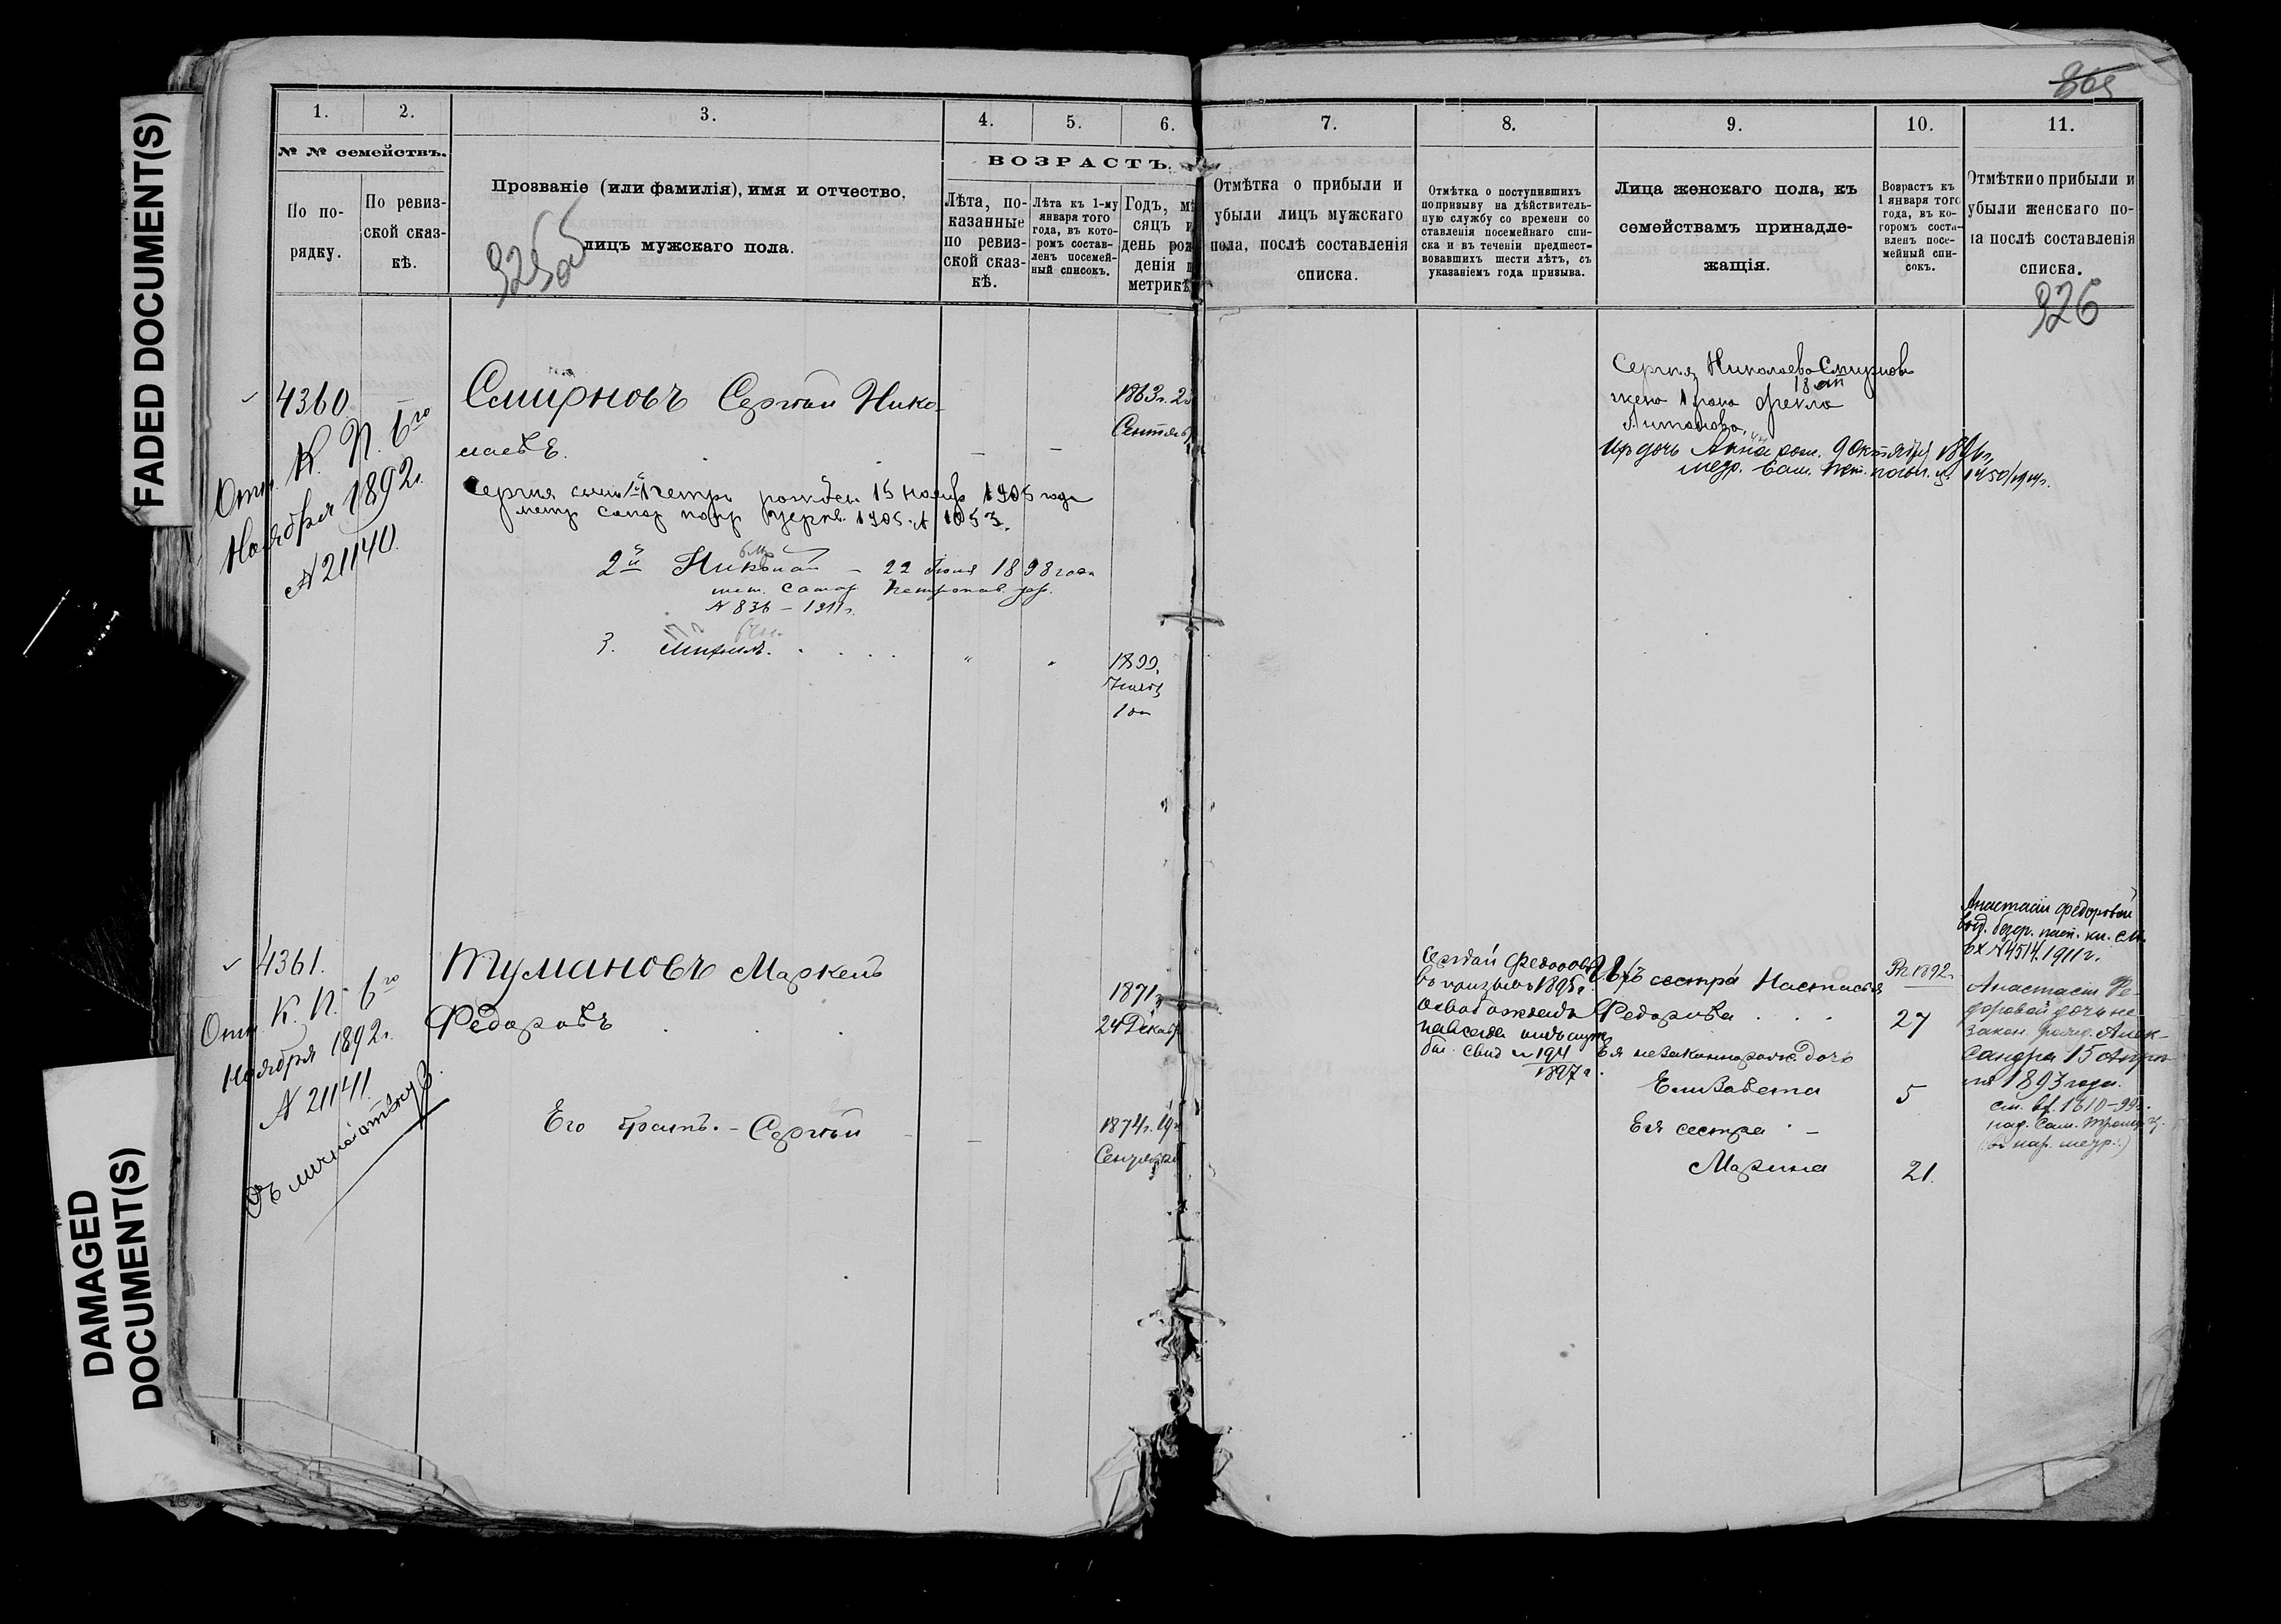 FADED DOCUMENT(S)
DAMAGED
DOCUMENT(S)
365
1.
2.
3.
4.
5.
6.
7.
8.
9.
10.
11.
№ № семействъ.
По по-
рядку.
По ревиз-
ской сказ-
кѣ.
Прозваніе (или фамилія), имя и отчество,
лицъ мужскаго пола.
325 об
ВОЗРАСТЪ.
Лѣта, по-
казанные
по ревиз-
ской сказ-
кѣ.
Лѣта къ 1-му
января того
года, въ кото-
ромъ состав-
ленъ посемей-
ный списокъ.
Годъ, мѣ
сяцъ и
день рож
денія п
метрикѣ
Отмѣтка о прибыли и
убыли лицъ мужскаго
пола, послѣ составленія
списка.
Отмѣтка о поступившихъ
по призыву на дѣйствитель-
ную службу со времени со
ставленія посемейнаго спи-
ска и въ теченіи предшест-
вовавшихъ шести лѣтъ, съ
указаніемъ года призыва.
Лица женскаго пола, къ
семействамъ принадле-
жащія.
Возрастъ къ
1 января того
года, въ ко-
торомъ соста-
вленъ посе-
мейный спи-
сокъ.
Отмѣтки о прибыли и
убыли женскаго по-
ла послѣ составленія
списка.
326
4360
Отн. К. П. 6го
Ноября 1892г.
№ 21140.
Смирновъ Сергѣй Нико-
лаевъ.
1863г. 23
Сентяб
Сергѣя сынъ 1й Петръ рожден 15 ноябр 1905 года
метр самар 1905 № 1053.
2й Николай – 22 1898 года
мет. Самар. Петропав.
№ 836 – 1911г.
3. Михаилъ.
1899,
Ноябр
1го
Сергѣя Николаева Смирнова
жена 1 брака 18 Фекла
Антонова,
Ихъ дочь Анна рож. 9 Октября 1891г.
1450/1914г.
4361.
Отн. К. П. 6го
Ноября 1892г.
№ 21141.
Тумановъ Маркелъ
Федоровъ
1871г
24 Декабр
Его братъ. – Сергѣй
1874г. 19
Сентября
Сергѣй Федоровъ
въ призывъ 1895г.
освобожденъ
навсегда отъ служ
бы. Свид № 194
1897г.
Ихъ сестра Настасья
Федорова
Ея незаконнорож. дочь
Елизавета
Ея сестра –
Марина
1892г.
27
5
21.
Анастасіи Федоровой
выд.
№ 4514. 1911г.
Анастасіи Фе-
доровой дочь не-
закон. рожд. Алек-
сандра 15 Апрѣ-
ля 1893 года.